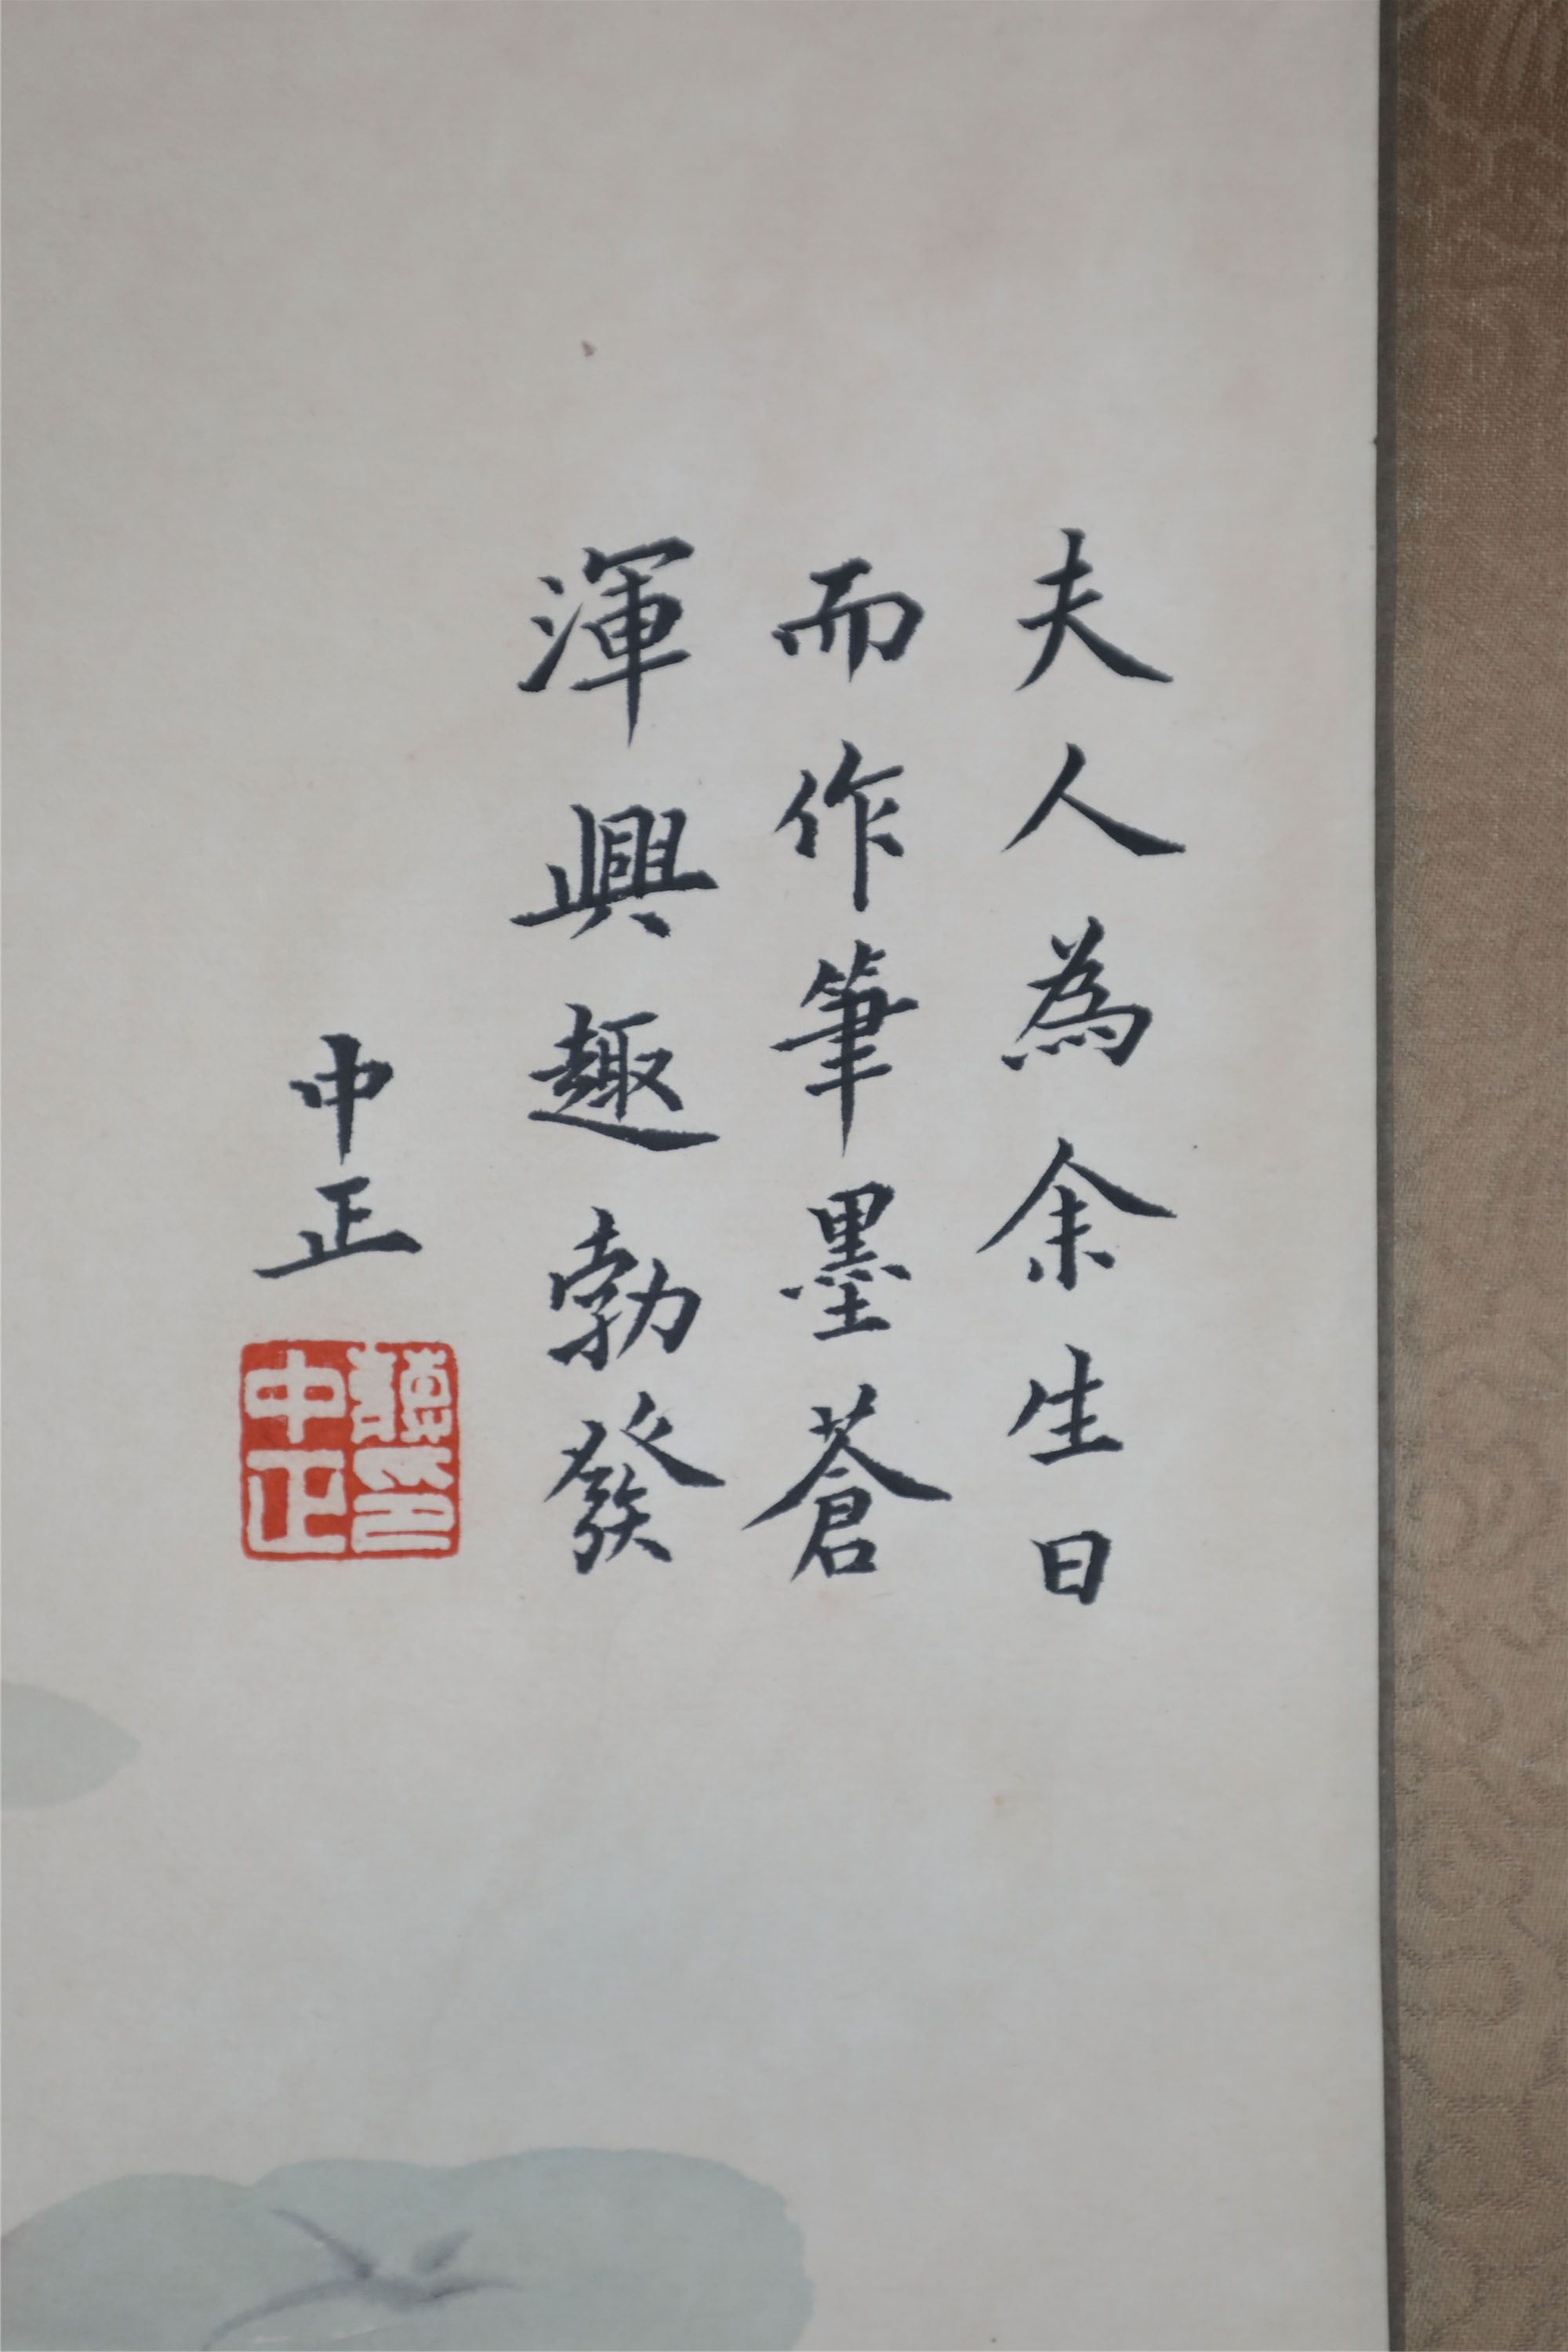 夫人為余生日
而作筆墨蒼
渾興趣勃發
中正
蔣中正印